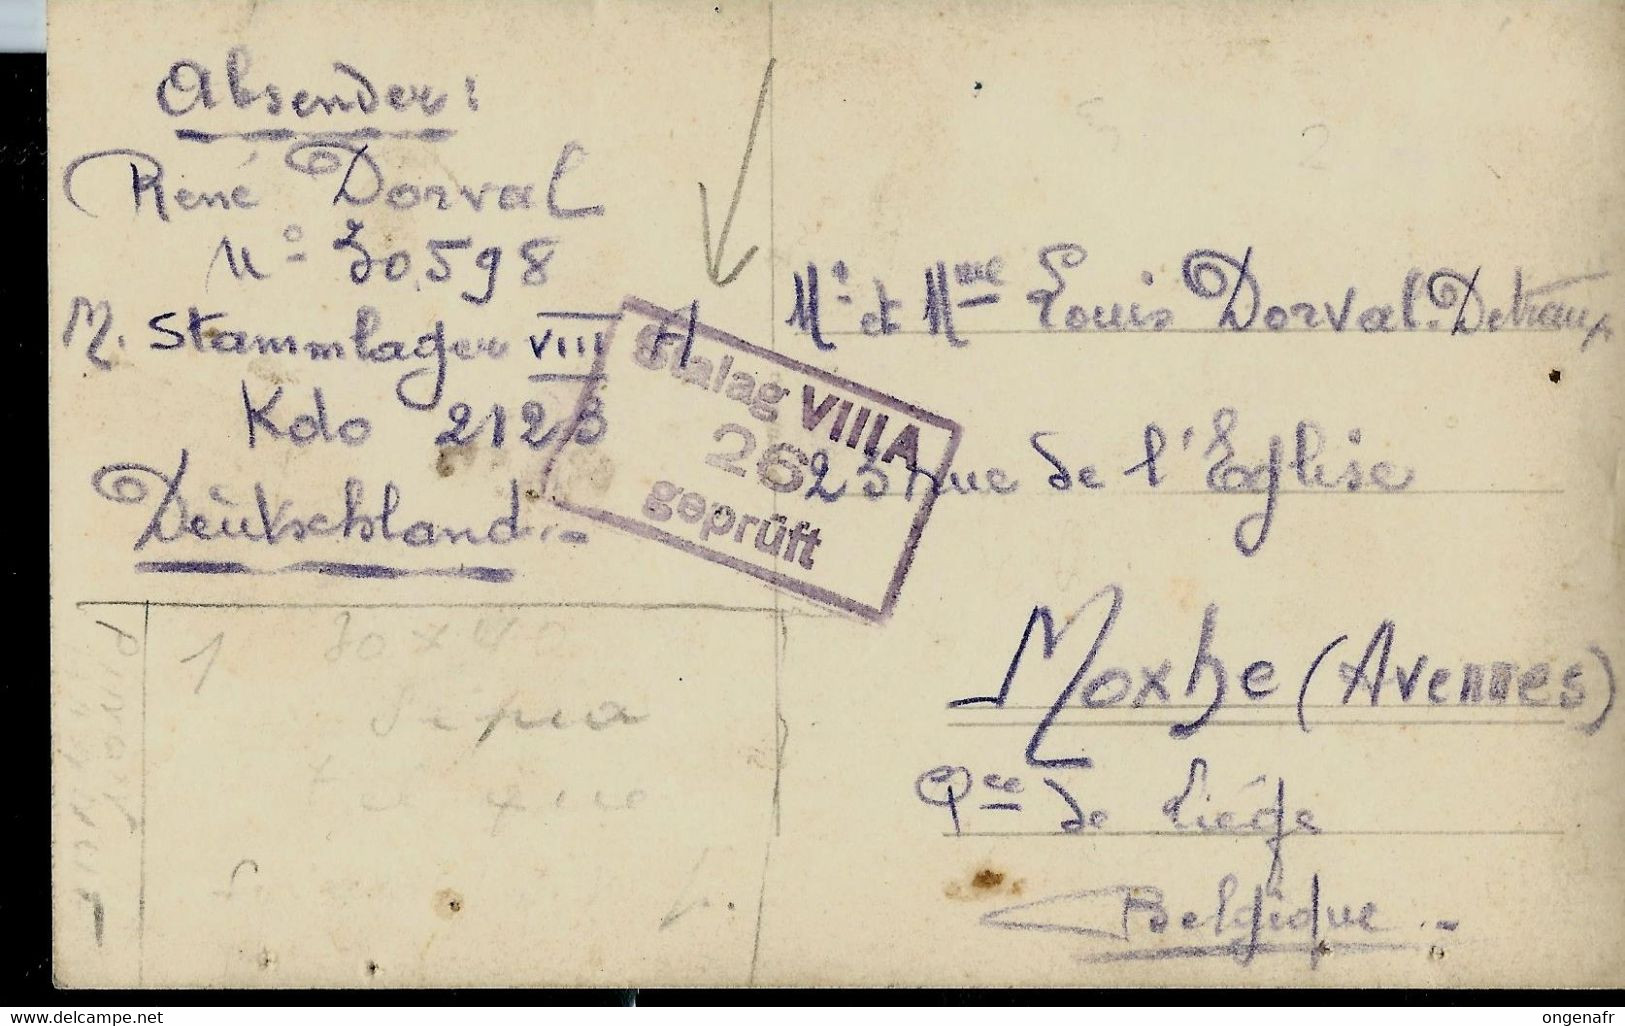 Absender:
René Dorval
N° 30.598
M. Stammlager VIII A
Kdo 2123
Deutschland.-
Stalag VIIIA
26
geprüft
Mr et Mme Louis Dorval-Detraux
23 rue de l'Eglise
Moxhe (Avennes)
Pce de Liége
Belgique.-
1 30 x 40
Sepia
www.delcampe.net
ongenafr